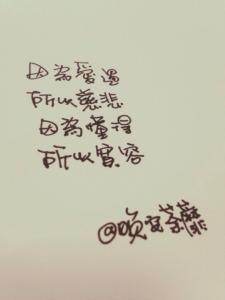 因為愛過
所以慈悲
因為懂得
所以寬容
@晚安荼蘼